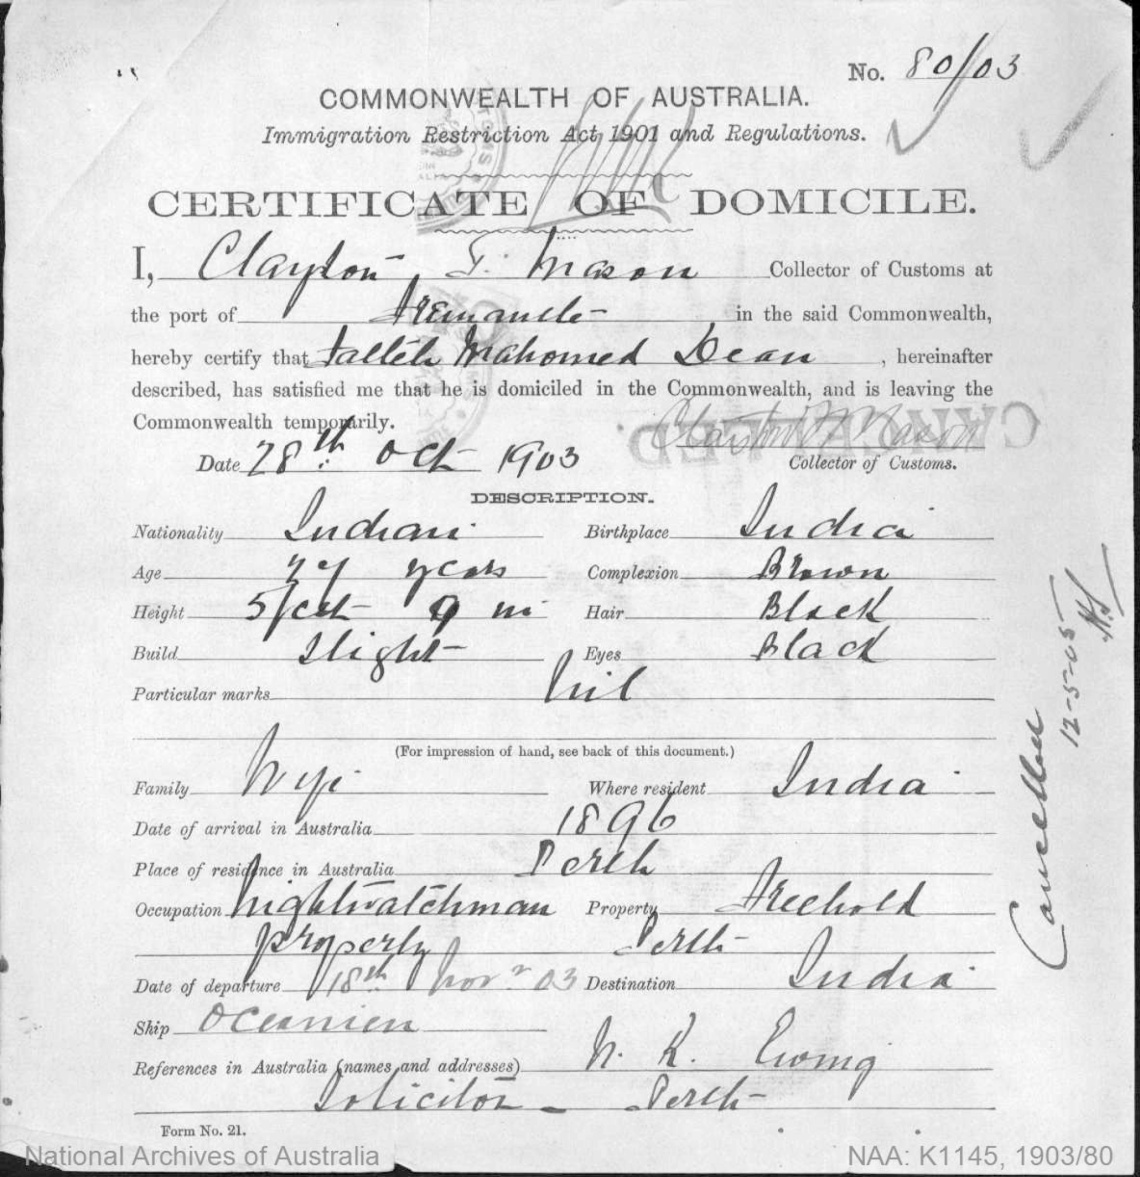 No. 80/03
COMMONWEALTH OF AUSTRALIA.
Immigration Restriction Act 1901 and Regulations.
CERTIFICATE OF DOMICILE.
I, Clayton T. Mason Collector of Customs at
the port of Fremantle in the said Commonwealth,
hereby certify that Falleh Mahomed Dean, hereinafter
described, has satisfied me that he is domiciled in the Commonwealth, and is leaving the
Commonwealth temporarily.
Clayton T Mason
CANCELLED.
Date 28th Oct 1903
Collector of Customs.
DESCRIPTION.
Nationality Indian Birthplace India
Age years Complexion Brown
Height 5 feet 9 in Hair Black
Build Slight Eyes Black
Particular marks Nil
(For impression of hand, see back of this document.)
Family Wife Where resident India
Date of arrival in Australia 1896
Place of residence in Australia Perth
Occupation Nightwatchman Property Freehold
property Perth
Date of departure 18th Novr 03 Destination India
Ship Oceanien
References in Australia (names and addresses) N. K. Ewing
Solicitor - Perth
Form No. 21.
Cancelled
12-5-05
National Archives of Australia
NAA: K1145, 1903/80